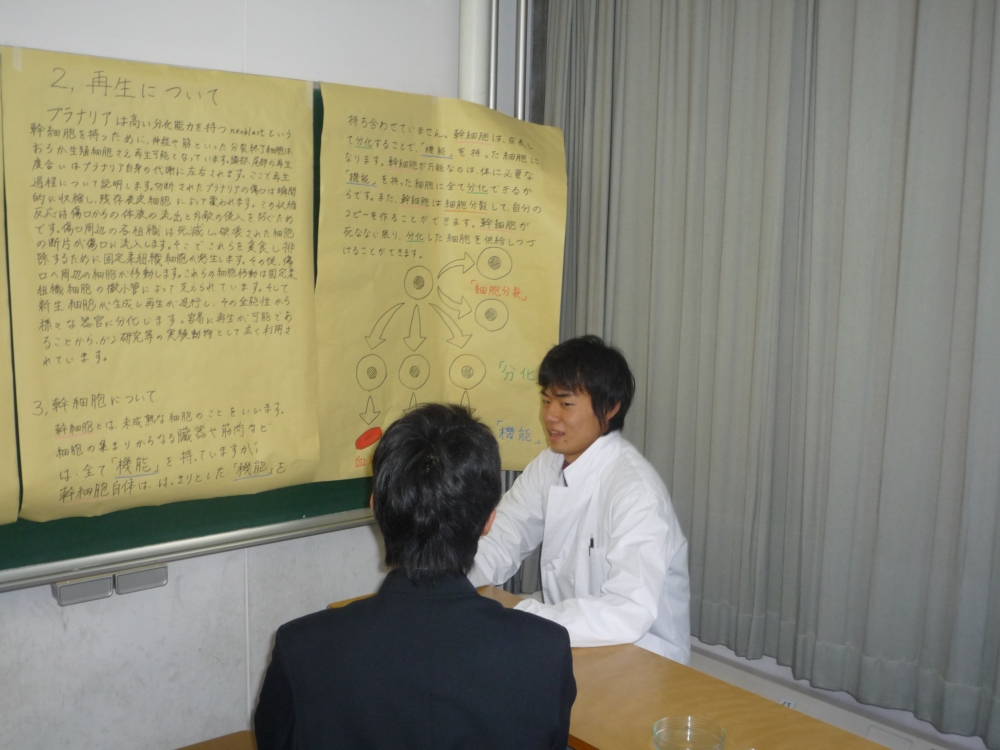 2, 再生について
プラナリアは高い分化能力を持つneoblastという
幹細胞を持つために、神経や筋といった分裂終了細胞は
おろか生殖細胞さえ再生可能となっています。頭部、尾部の再生
度合いはプラナリア自身の代謝に左右されます。ここで再生
過程について説明します。切断されたプラナリアの傷口は瞬間
的に収縮し、残存表皮細胞によって覆われます。この収縮
反応は傷口からの体液の流出と外敵の侵入を防ぐため
です。傷口周辺の各組織は死滅し、破壊された細胞
の断片が傷口に流入します。そこでこれらを貪食し排
除するために固定柔組織細胞が発生します。その後、傷
口へ周辺の細胞が移動します。これらの細胞移動は固定柔
組織細胞の微小管によって支えられています。そして
新生細胞が生成し再生が進行し、その全能性から
様々な器官に分化します。容易に再生が可能であ
ることから、研究等の実験動物として広く利用さ
れています。
3, 幹細胞について
幹細胞とは、未成熟な細胞のことをいいます。
細胞の集まりからなる臓器や筋肉など
は、全て「機能」を持っていますが、
幹細胞自体は、はっきりとした「機能」を
持ち合わせていません。幹細胞は、成長し
て分化することで、「機能」を持った細胞に
なります。幹細胞が万能なのは、体に必要な
「機能」を持った細胞に全て分化できるか
らです。また、幹細胞は細胞分裂して、自分の
コピーを作ることができます。幹細胞が
死なない限り、分化した細胞を供給しつづ
けることができます。
「細胞分裂」
「分化
「機能」
血